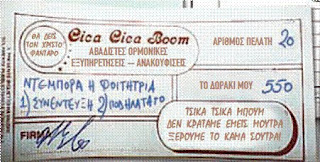 ΘΑ ΔΕΙΣ
ΤΟΝ ΧΡΙΣΤΟ
ΦΑΝΤΑΡΟ
Cica Cica Boom
ΑΒΑΔΙΣΤΕΣ ΟΡΜΟΝΙΚΕΣ
ΕΞΥΠΗΡΕΤΗΣΕΙΣ - ΑΝΑΚΟΥΦΙΣΕΙΣ
ΑΡΙΘΜΟΣ ΠΕΛΑΤΗ 20
ΝΤΕΜΠΟΡΑ Η ΦΟΙΤΗΤΡΙΑ
1) ΣΥΝΕΝΤΕΥΞΗ 2) ΠΟΔΗΛΑΤΑΡΟ
ΤΟ ΔΩΡΑΚΙ ΜΟΥ 550
ΤΣΙΚΑ ΤΣΙΚΑ ΜΠΟΥΜ
ΔΕΝ ΚΡΑΤΑΜΕ ΕΜΕΙΣ ΜΟΥΤΡΑ
ΞΕΡΟΥΜΕ ΤΟ ΚΑΜΑ ΣΟΥΤΡΑ!
FIRMA